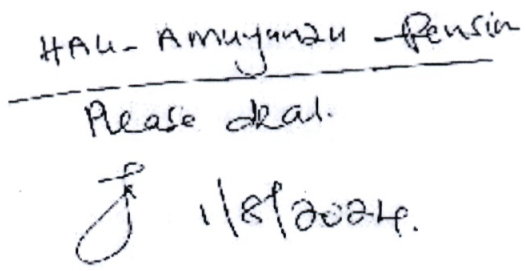 HAU - Amuyunzu - Pension
Please deal.
1/8/2024.